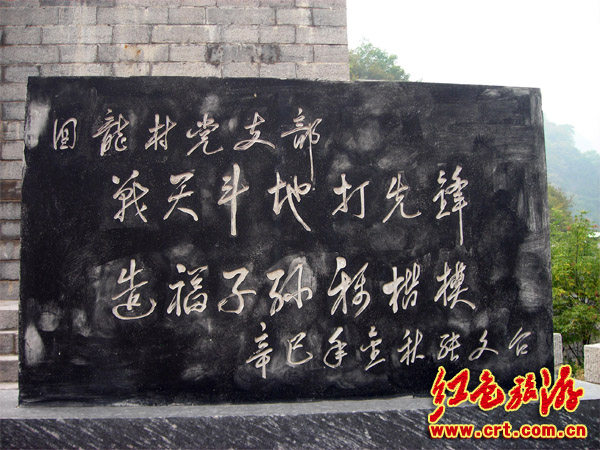 回龍村党支部
战天斗地打先鋒
造福子孙称楷模
辛巳年金秋张文台
红色旅游
www.crt.com.cn